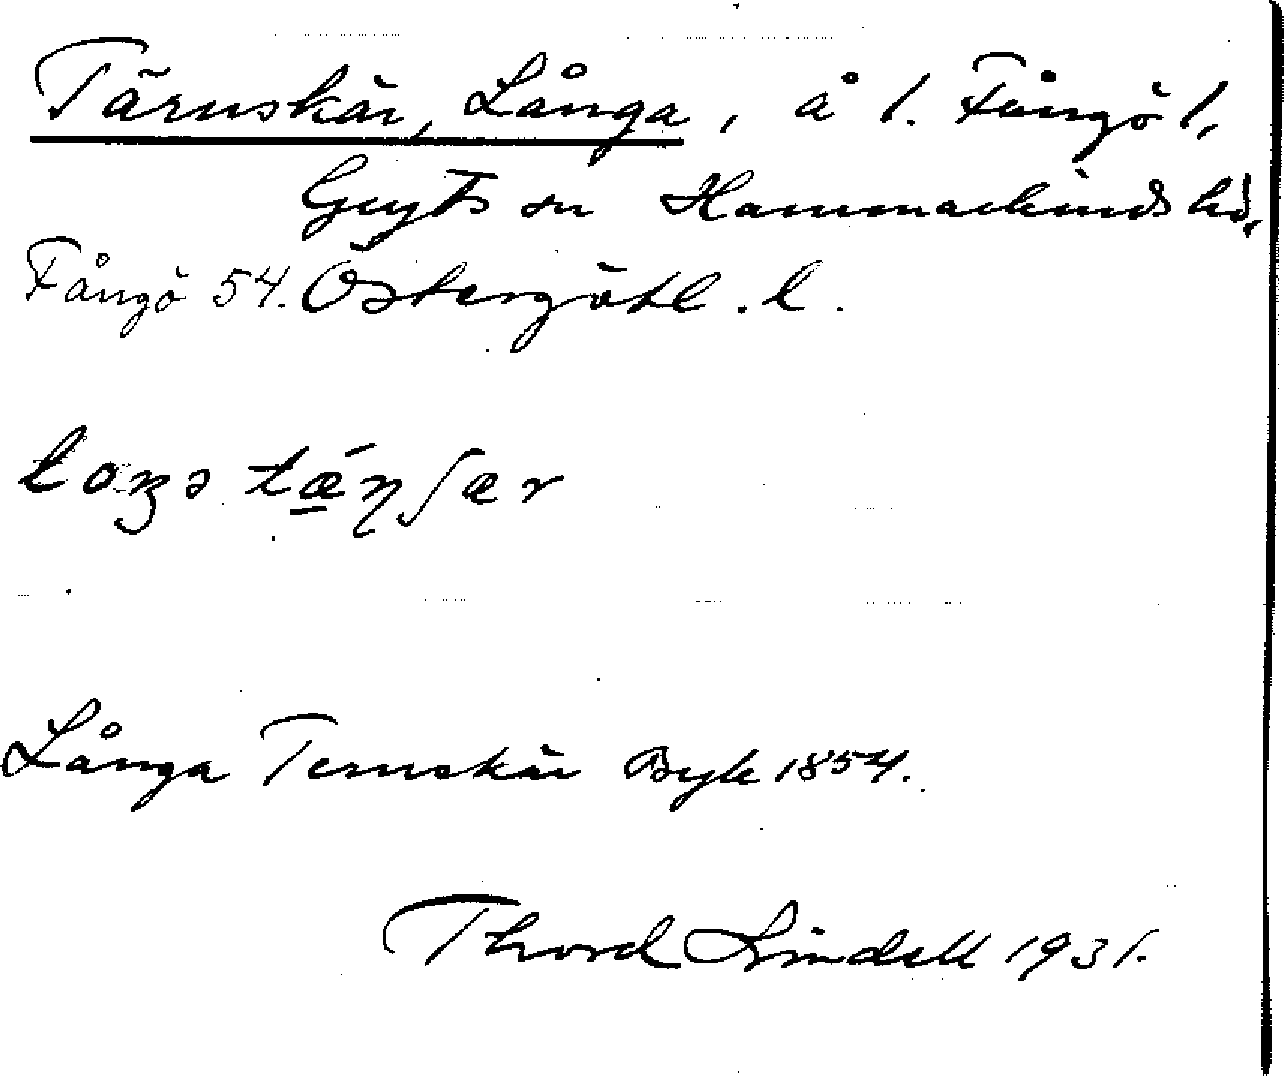 Tärnskär, Långa, å 1. Fångö 1,
Gryts sn Hammarkinds hd,
Fångö 54. Östergötl. l.
Långa Ternskär Byk 1854.
Thord Lindell 1931.